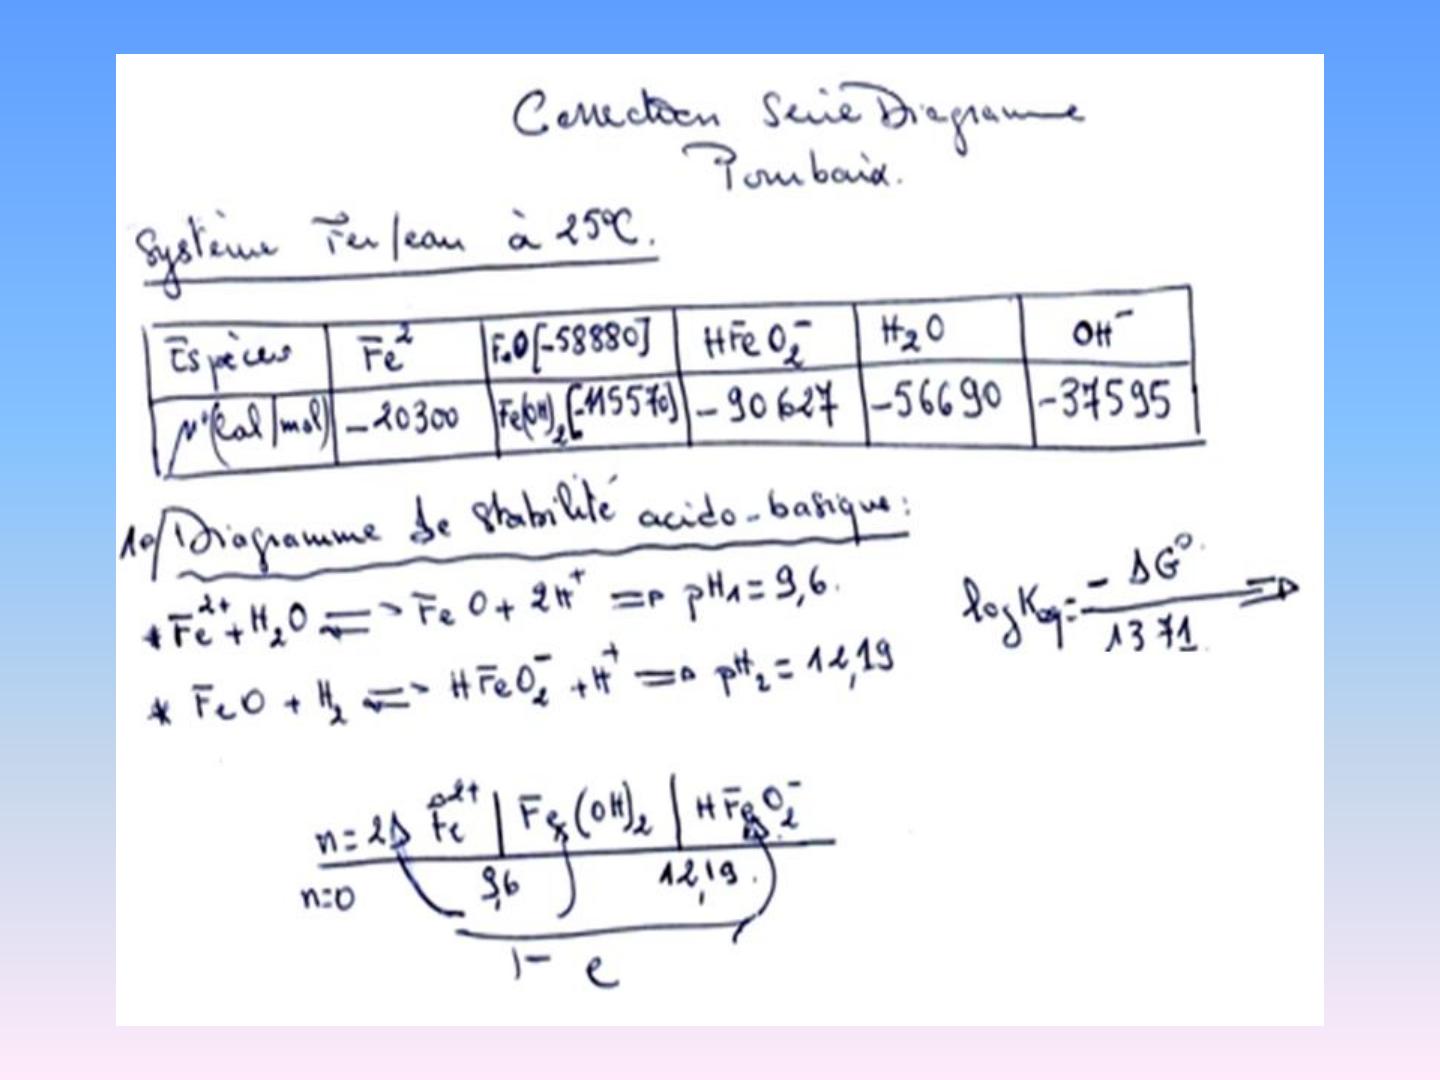 Correction Série Diagramme
Pourbaix.
Système Fer/eau à 25°C.
Espèces Fe2 FeO[-58880] HFeO2- H2O OH-
μ°(Cal/mol) -20300 Fe(OH)2[-115570] -90627 -56690 -37595
1°/ Diagramme de stabilité acido-basique:
* Fe2+ + H2O ⇌ FeO + 2H+ ⇒ pH1 = 9,6.
log Keq = -ΔG° / 1371 ⇒
* FeO + H2 ⇌ HFeO2- + H+ ⇒ pH2 = 12,19
n=2 Fe2+ | Fe(OH)2 | HFeO2-
n=0 9,6 12,19.
Fe